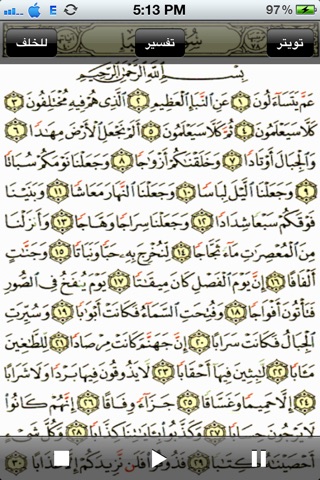 E 5:13 PM 97%
تويتر تفسير للخلف
بِسْمِ ٱللَّهِ ٱلرَّحْمَٰنِ ٱلرَّحِيمِ
عَمَّ يَتَسَآءَلُونَ ١ عَنِ ٱلنَّبَإِ ٱلْعَظِيمِ ٢ ٱلَّذِى هُمْ فِيهِ مُخْتَلِفُونَ ٣
كَلَّا سَيَعْلَمُونَ ٤ ثُمَّ كَلَّا سَيَعْلَمُونَ ٥ أَلَمْ نَجْعَلِ ٱلْأَرْضَ مِهَٰدًا ٦
وَٱلْجِبَالَ أَوْتَادًا ٧ وَخَلَقْنَٰكُمْ أَزْوَٰجًا ٨ وَجَعَلْنَا نَوْمَكُمْ سُبَاتًا
٩ وَجَعَلْنَا ٱلَّيْلَ لِبَاسًا ١٠ وَجَعَلْنَا ٱلنَّهَارَ مَعَاشًا ١١ وَبَنَيْنَا
فَوْقَكُمْ سَبْعًا شِدَادًا ١٢ وَجَعَلْنَا سِرَاجًا وَهَّاجًا ١٣ وَأَنزَلْنَا
مِنَ ٱلْمُعْصِرَٰتِ مَآءً ثَجَّاجًا ١٤ لِّنُخْرِجَ بِهِۦ حَبًّا وَنَبَاتًا ١٥ وَجَنَّٰتٍ
أَلْفَافًا ١٦ إِنَّ يَوْمَ ٱلْفَصْلِ كَانَ مِيقَٰتًا ١٧ يَوْمَ يُنفَخُ فِى ٱلصُّورِ
فَتَأْتُونَ أَفْوَاجًا ١٨ وَفُتِحَتِ ٱلسَّمَآءُ فَكَانَتْ أَبْوَٰبًا ١٩ وَسُيِّرَتِ
ٱلْجِبَالُ فَكَانَتْ سَرَابًا ٢٠ إِنَّ جَهَنَّمَ كَانَتْ مِرْصَادًا ٢١ لِّلطَّٰغِينَ
مَـَٔابًا ٢٢ لَّٰبِثِينَ فِيهَآ أَحْقَابًا ٢٣ لَّا يَذُوقُونَ فِيهَا بَرْدًا وَلَا شَرَابًا
٢٤ إِلَّا حَمِيمًا وَغَسَّاقًا ٢٥ جَزَآءً وِفَاقًا ٢٦ إِنَّهُمْ كَانُوا۟
لَا يَرْجُونَ حِسَابًا ٢٧ وَكَذَّبُوا۟ بِـَٔايَٰتِنَا كِذَّابًا ٢٨ وَكُلَّ شَىْءٍ
أَحْصَيْنَٰهُ كِتَٰبًا ٢٩ فَذُوقُوا۟ فَلَن نَّزِيدَكُمْ إِلَّا عَذَابًا ٣٠